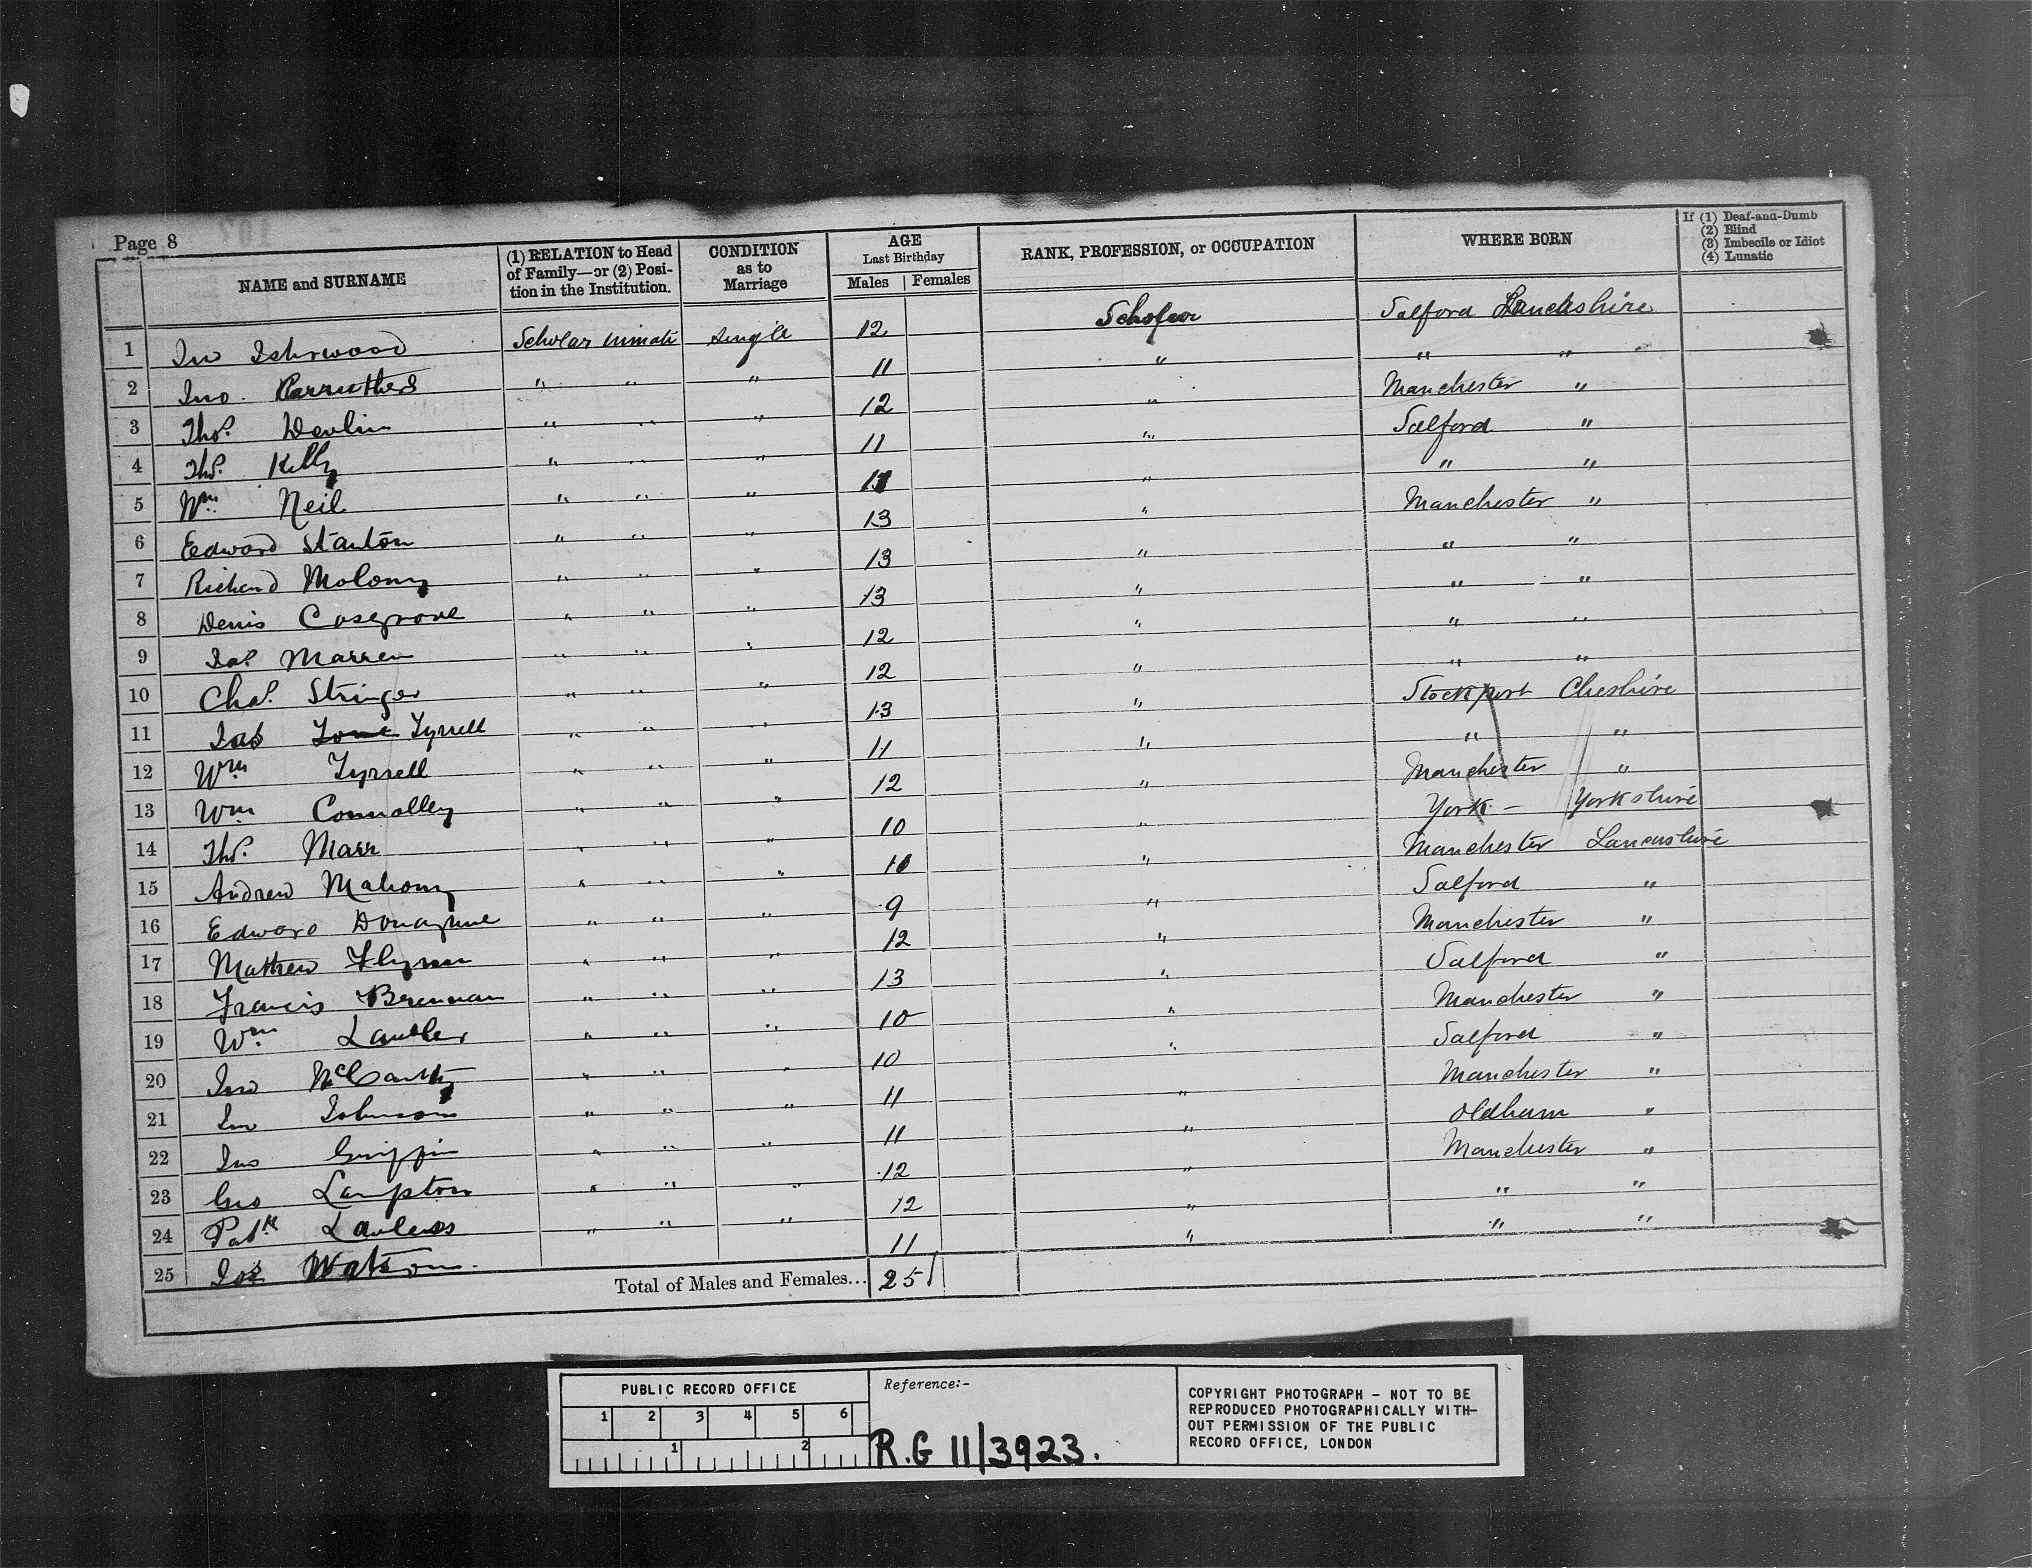 Page 8
NAME and SURNAME (1) RELATION to Head of Family—or (2) Position in the Institution. CONDITION as to Marriage AGE Last Birthday Males Females RANK, PROFESSION, or OCCUPATION WHERE BORN If (1) Deaf-and-Dumb (2) Blind (3) Imbecile or Idiot (4) Lunatic
1 Jno Isherwood Scholar inmate Single 12 Scholar Salford Lancashire
2 Jno. Carruthers " " " 11 " " "
3 Thos. Devlin " " " 12 " Manchester "
4 Thos. Kelly " " " 11 " Salford "
5 Wm. Neil " " " 11 " " "
6 Edward Stanton " " " 13 " Manchester "
7 Richard Molony " " " 13 " " "
8 Denis Cosgrove " " " 13 " " "
9 Jas. Marren " " " 12 " " "
10 Chas. Stringer " " " 12 " " "
11 Jas Tyrrell " " " 13 " Stockport Cheshire
12 Wm Tyrrell " " " 11 " " "
13 Wm Connolley " " " 12 " Manchester "
14 Thos. Marr " " " 10 " York - Yorkshire
15 Andrew Mahony " " " 10 " Manchester Lancashire
16 Edward Donaghue " " " 9 " Salford "
17 Mathew Flynn " " " 12 " Manchester "
18 Francis Brennan " " " 13 " Salford "
19 Wm. Lawler " " " 10 " Manchester "
20 Jno McCarthy " " " 10 " Salford "
21 Jno Johnson " " " 11 " Manchester "
22 Jno Griffin " " " 11 " Oldham "
23 Geo Lampton " " " 12 " Manchester "
24 Patk " " " 12 " " "
25 Jos Watson 11 " " "
Total of Males and Females... 25
PUBLIC RECORD OFFICE
1 2 3 4 5 6
1 2
Reference:-
R.G 11/3923.
COPYRIGHT PHOTOGRAPH - NOT TO BE
REPRODUCED PHOTOGRAPHICALLY WITH-
OUT PERMISSION OF THE PUBLIC
RECORD OFFICE, LONDON